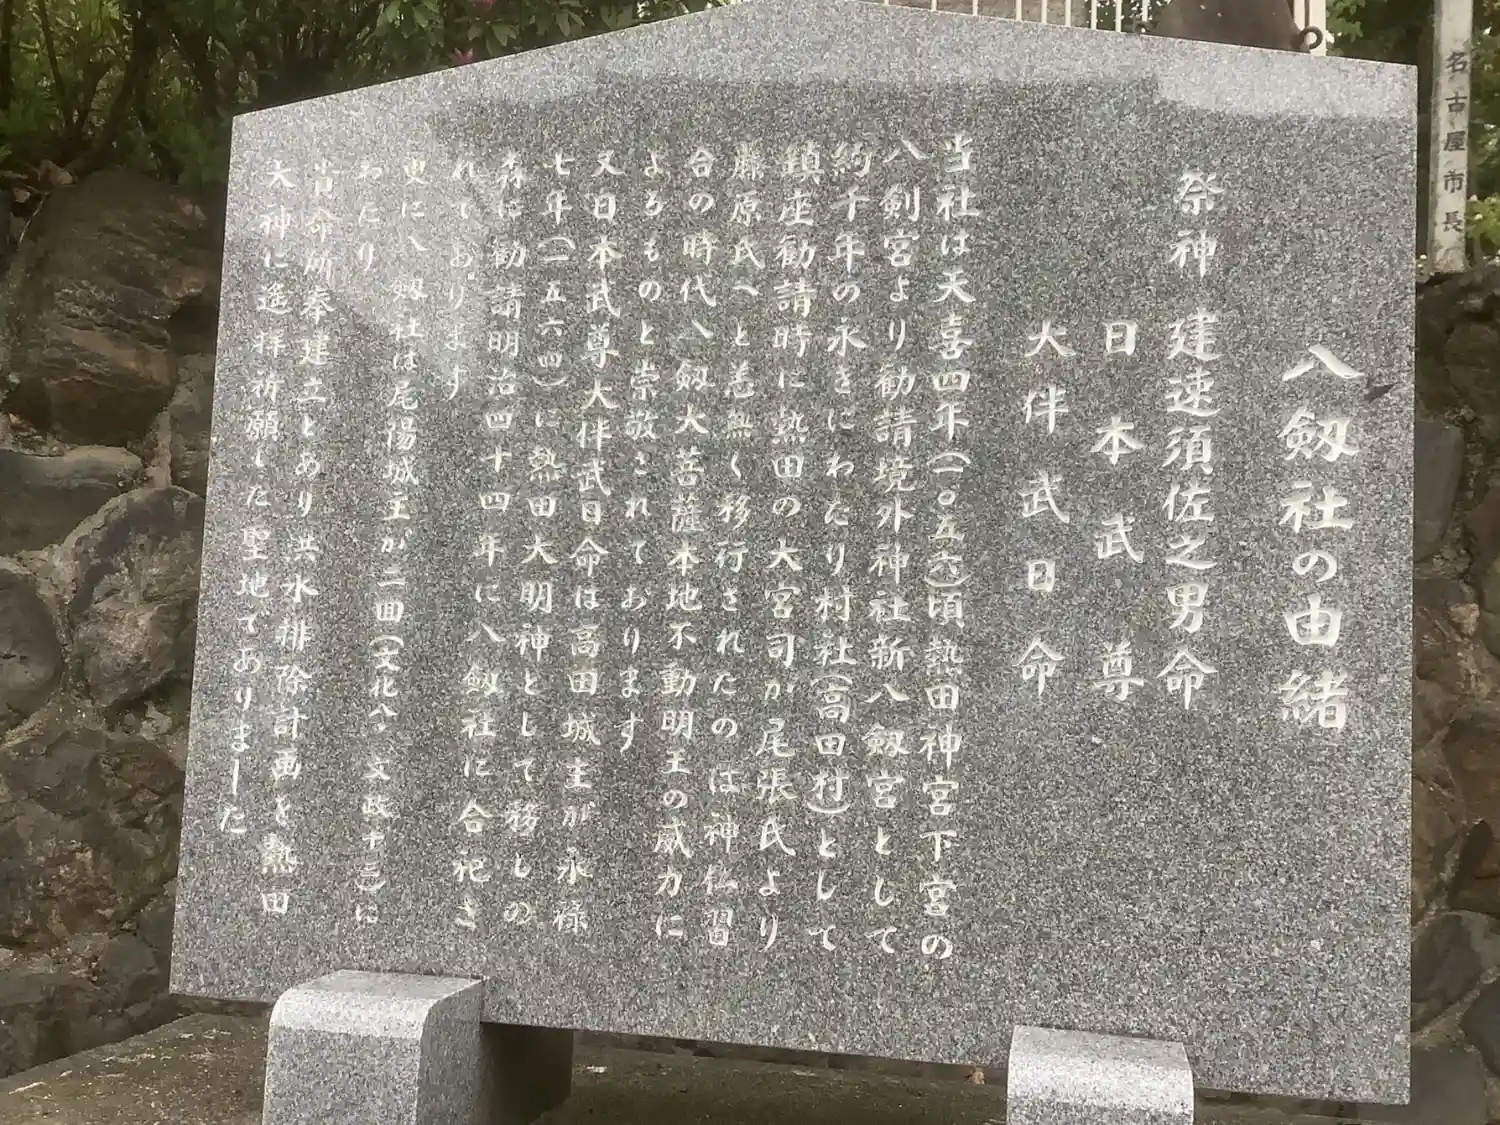 八劔社の由緒
祭神 建速須佐之男命
日本武尊
大伴武日命
当社は天喜四年(一〇五六)頃熱田神宮下宮の
八剣宮より勧請境外神社新八劔宮として
約千年の永きにわたり村社(高田村)として
鎮座勧請時に熱田の大宮司が尾張氏より
藤原氏へと恙無く移行されたのは神仏習
合の時代八劔大菩薩本地不動明王の威力に
よるものと崇敬されております
又日本武尊大伴武日命は高田城主が永禄
七年(一五六四)に熱田大明神として務しの
森に勧請明治四十四年に八劔社に合祀さ
れております
更に八劔社は尾陽城主が二回(文化八、文政十三)に
わたり
当命所奉建立とあり洪水排除計画を熱田
大神に遙拝祈願した聖地でありました
名古屋市長